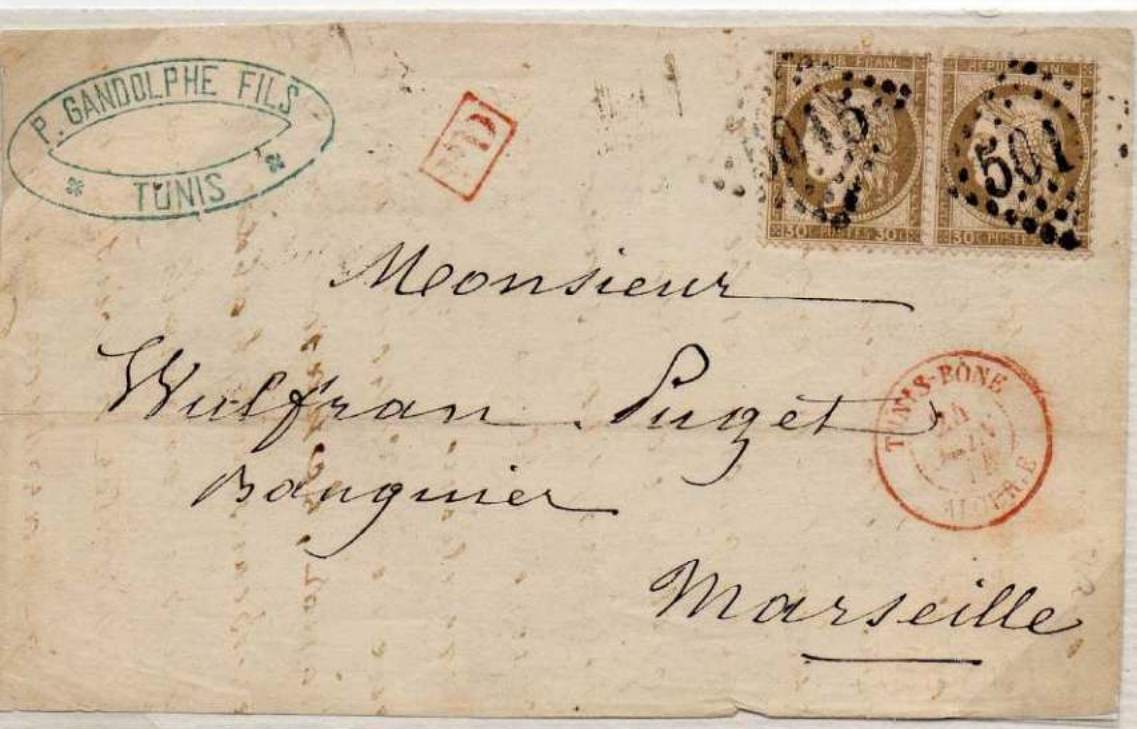 P. GANDOLPHE FILS
TUNIS
PD
REPUB FRANC
30 C POSTES 30 C
5015
REPUB FRANC
30 C POSTES
501
Monsieur
Wulfran Puget
Banquier
Marseille
TUNIS-BÔNE
24
JUIN
ALGER.E